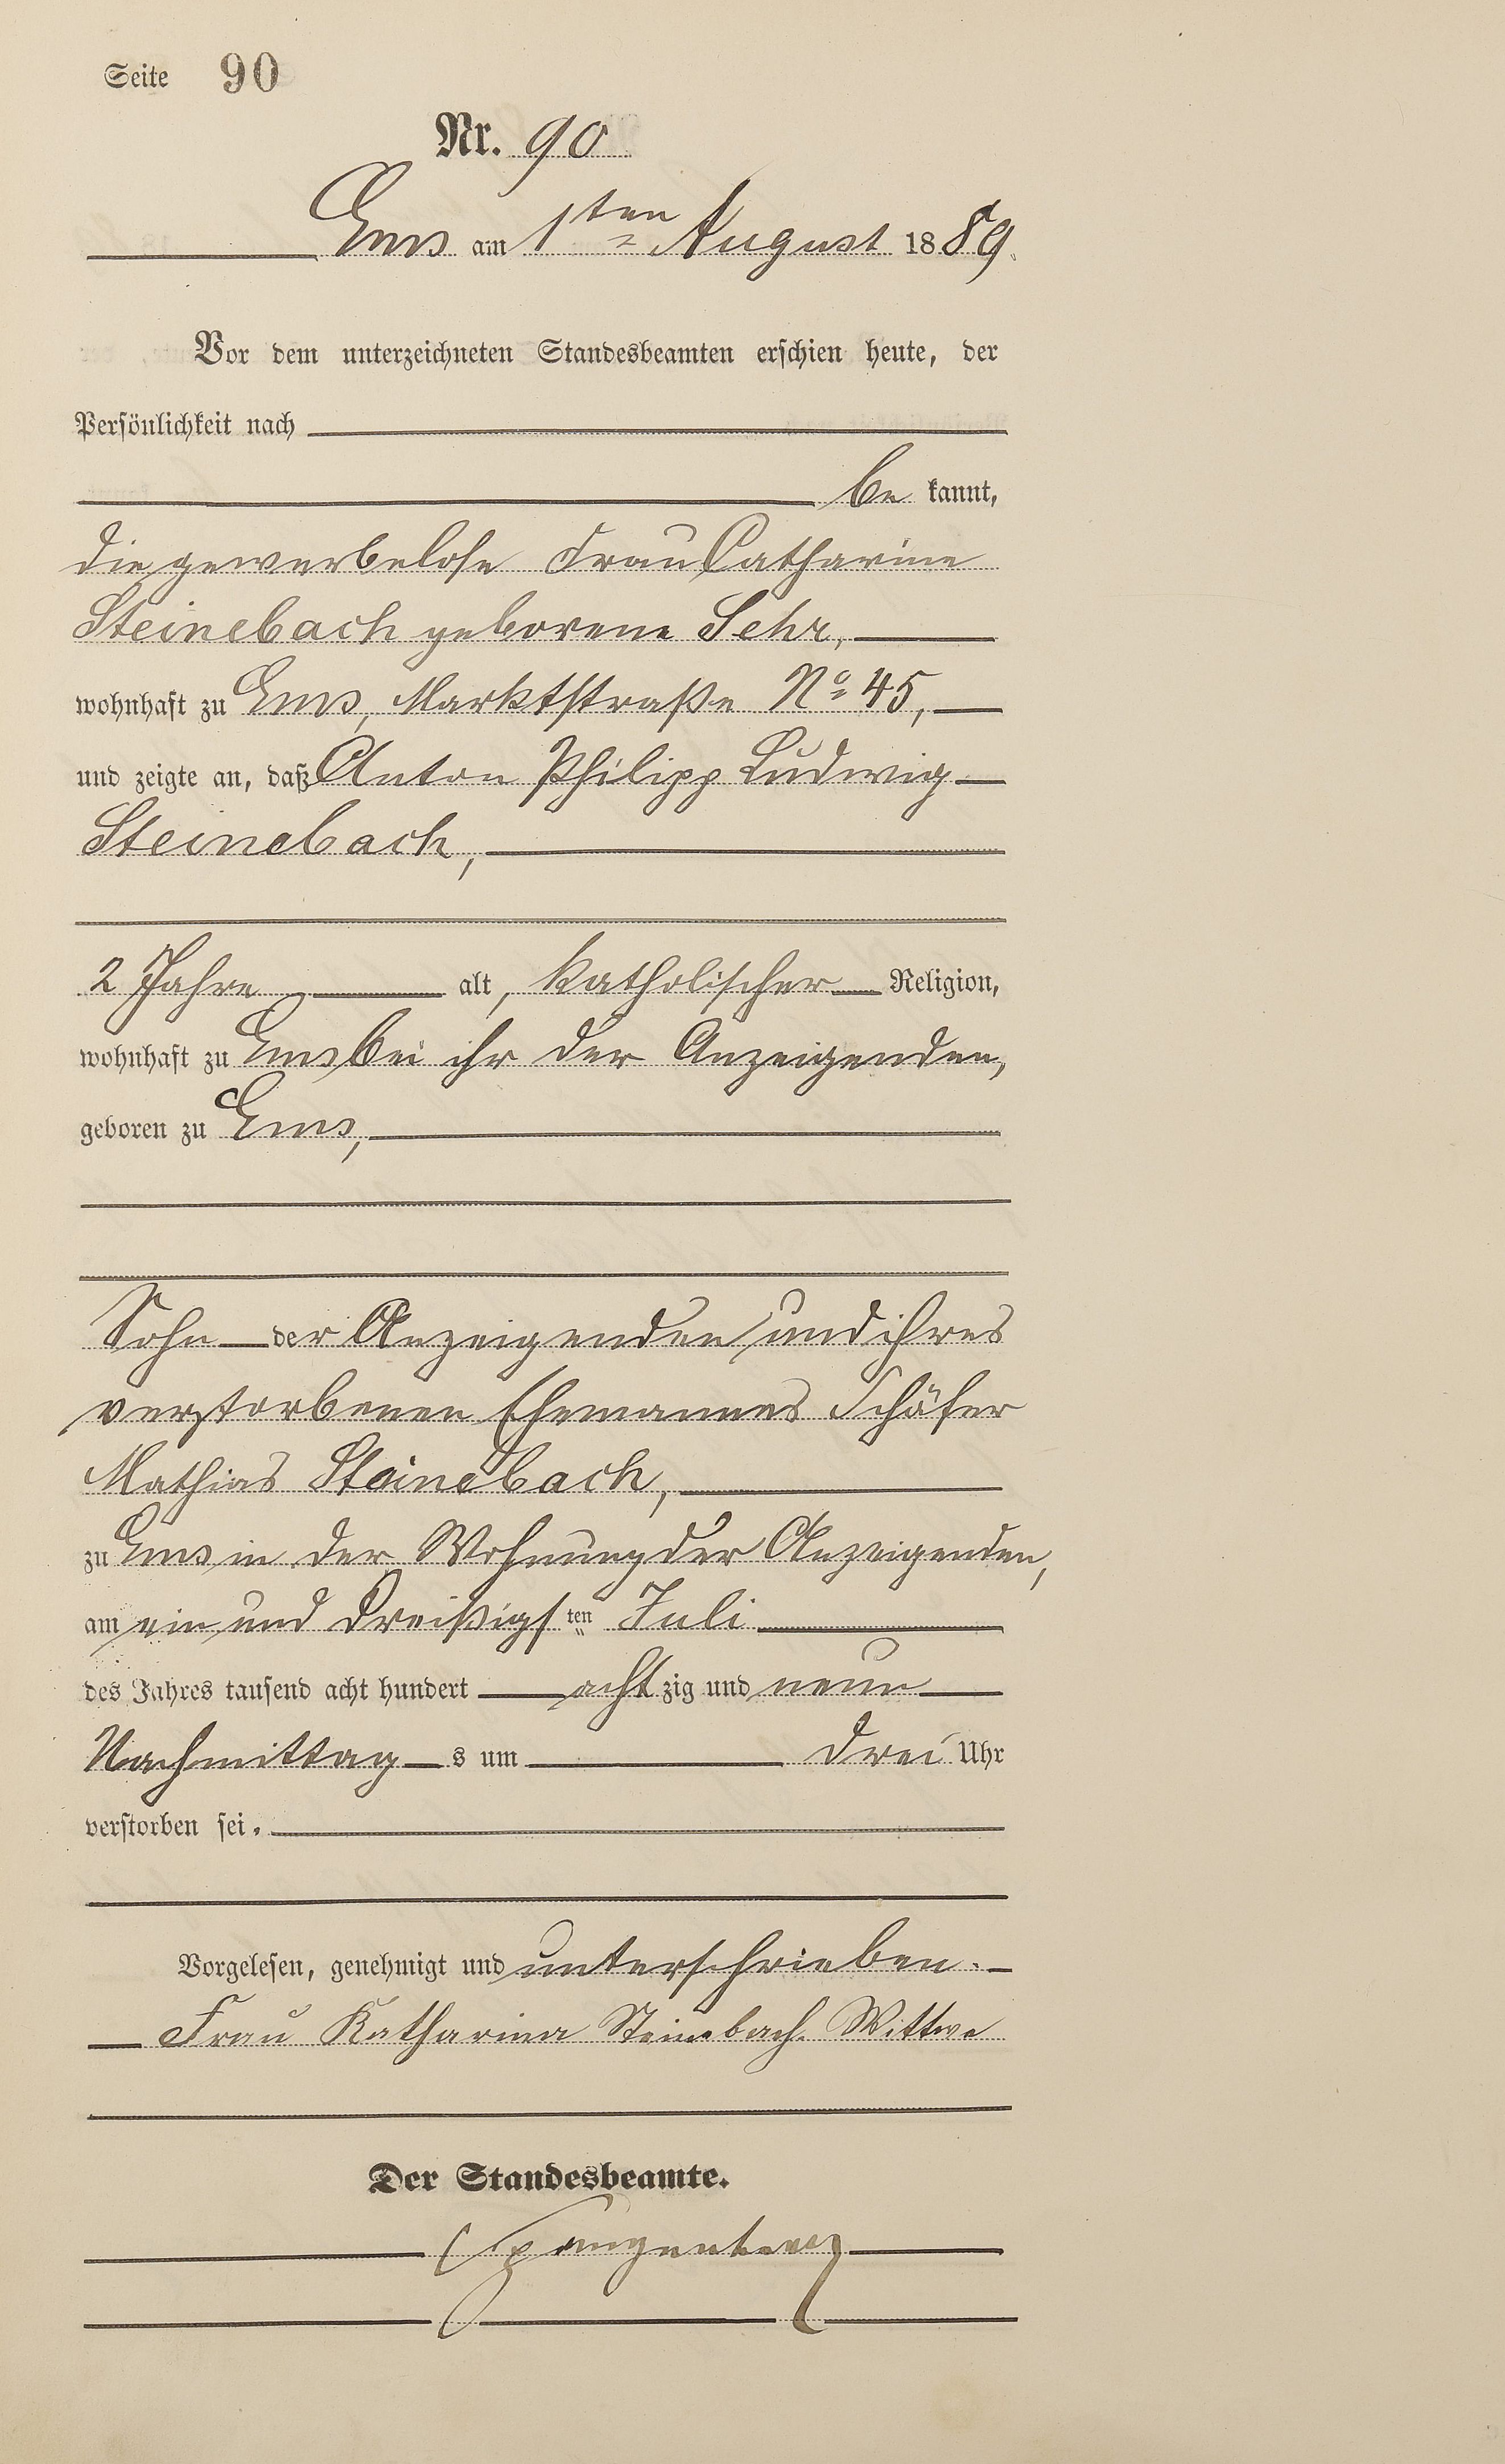 Seite 90
Nr. 90
Ems am 1ten August 1889.
Vor dem unterzeichneten Standesbeamten erschien heute, der
Persönlichkeit nach
be kannt,
die gewerbelose Frau Catharine
Steinebach geborene Sehr,
wohnhaft zu Ems, Marktstraße No 45,
und zeigte an, daß Anton Philipp Ludwig
Steinebach,
2 Jahre alt, katholischer Religion,
wohnhaft zu Ems bei ihr der Anzeigenden,
geboren zu Ems,
Sohn der Anzeigenden und ihres
verstorbenen Ehemannes Schäfer
Mathias Steinebach,
zu Ems in der Wohnung der Anzeigenden,
am ein und dreißigsten Juli
des Jahres tausend acht hundert achtzig und neun
Nachmittags um drei Uhr
verstorben sei.
Vorgelesen, genehmigt und unterschrieben.
Frau Katharina Steinebach. Wittwe
Der Standesbeamte.